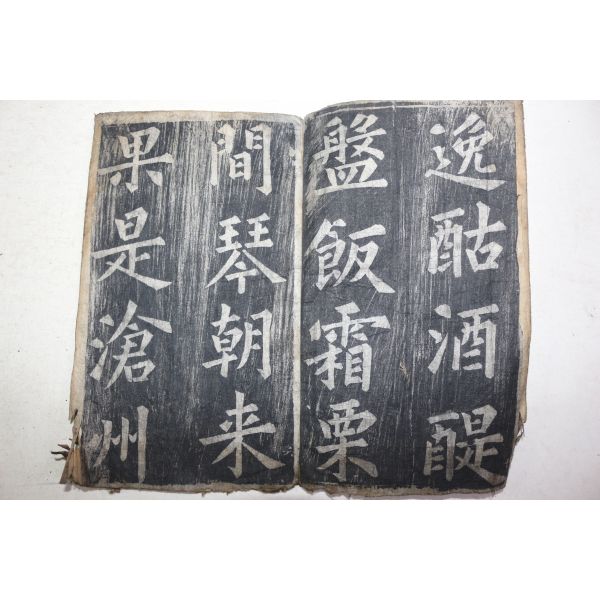 逸酤酒醒
盤飯霜栗
間琴朝来
果是滄州